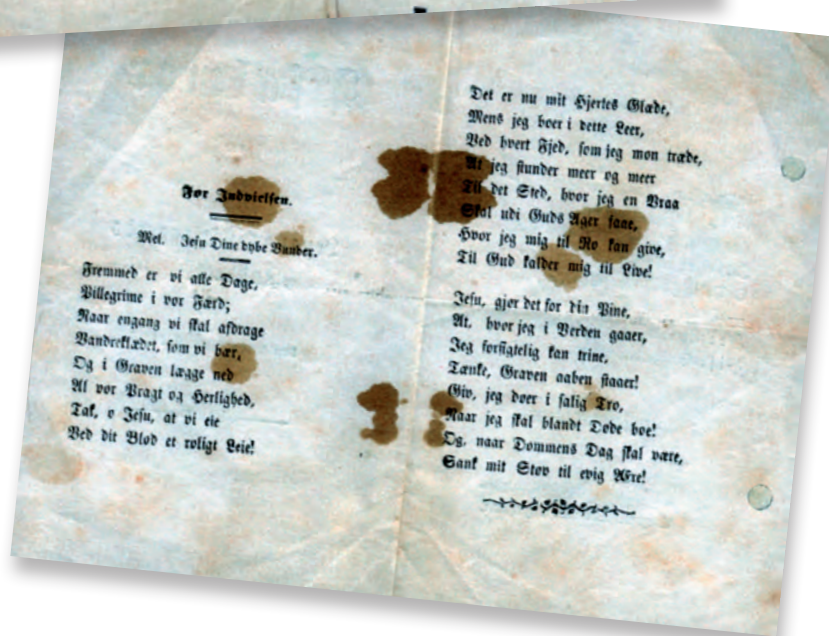 Før Indvielsen.
Mel. Jesu Dine dybe Vunder.
Fremmed er vi alle Dage,
Pillegrime i vor Færd;
Naar engang vi skal afdrage
Vandreklædet, som vi bær,
Og i Graven lægge ned
Al vor Pragt og Herlighed,
Tak, o Jesu, at vi eie
Ved dit Blod et roligt Leie!
Det er nu mit Hjertes Glæde,
Mens jeg boer i dette Leer,
Ved hvert Fjed, som jeg mon træde,
At jeg stunder meer og meer
Til det Sted, hvor jeg en Vraa
Skal udi Guds Ager faae,
Hvor jeg mig til Ro kan give,
Til Gud kalder mig til Live!
Jesu, gjør det for din Pine,
At, hvor jeg i Verden gaaer,
Jeg forsigtelig kan trine,
Tænke, Graven aaben staaer!
Giv, jeg døer i salig Tro,
Naar jeg skal blandt Døde boe!
Og, naar Dommens Dag skal være,
Sank mit Støv til evig Ære!